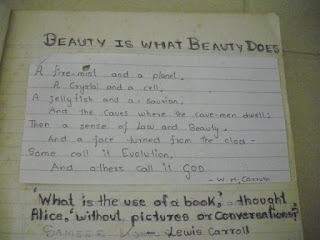 BEAUTY IS WHAT BEAUTY DOES
A fire-mist and a planet,
A Crystal and a cell,
A jellyfish and a saurian,
And the Caves where the cave-men dwell;
Then a sense of Law and Beauty,
And a face turned from the clod -
Some call it Evolution,
And others call it GOD
- W. H. Carruth
'What is the use of a book,' thought
Alice, 'without pictures or conversations?'
SAMEER
- Lewis Carroll